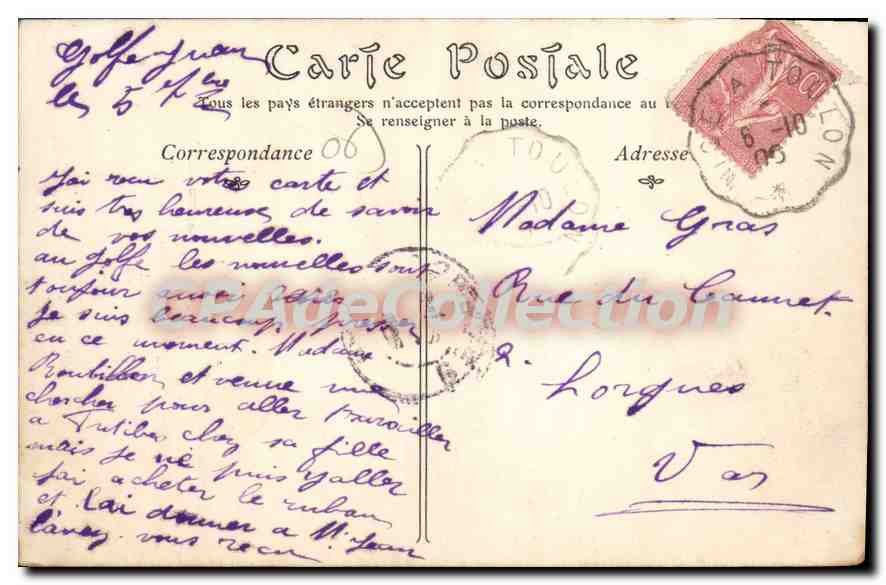 Golfe Juan
le 5
Carte Postale
Tous les pays étrangers n'acceptent pas la correspondance au
Se renseigner à la poste.
Correspondance
06
Adresse
J'ai recu votre carte et
suis tres heureuse de savoir
de vos nouvelles.
au Golfe les nouvelles sont
toujour aussi
Je suis beaucoup presser
en ce moment. Madame
et venue me
chercher pour aller travailler
a Antibes chez sa fille
mais je ne puis y aller
J'ai acheter le ruban
et l'ai donner a Mr Jean
l'avez vous recu
Madame Gras
Rue du
2.
Lorgues
Var
TOULON
6 -10
06
TOULON
CPAdeCollection